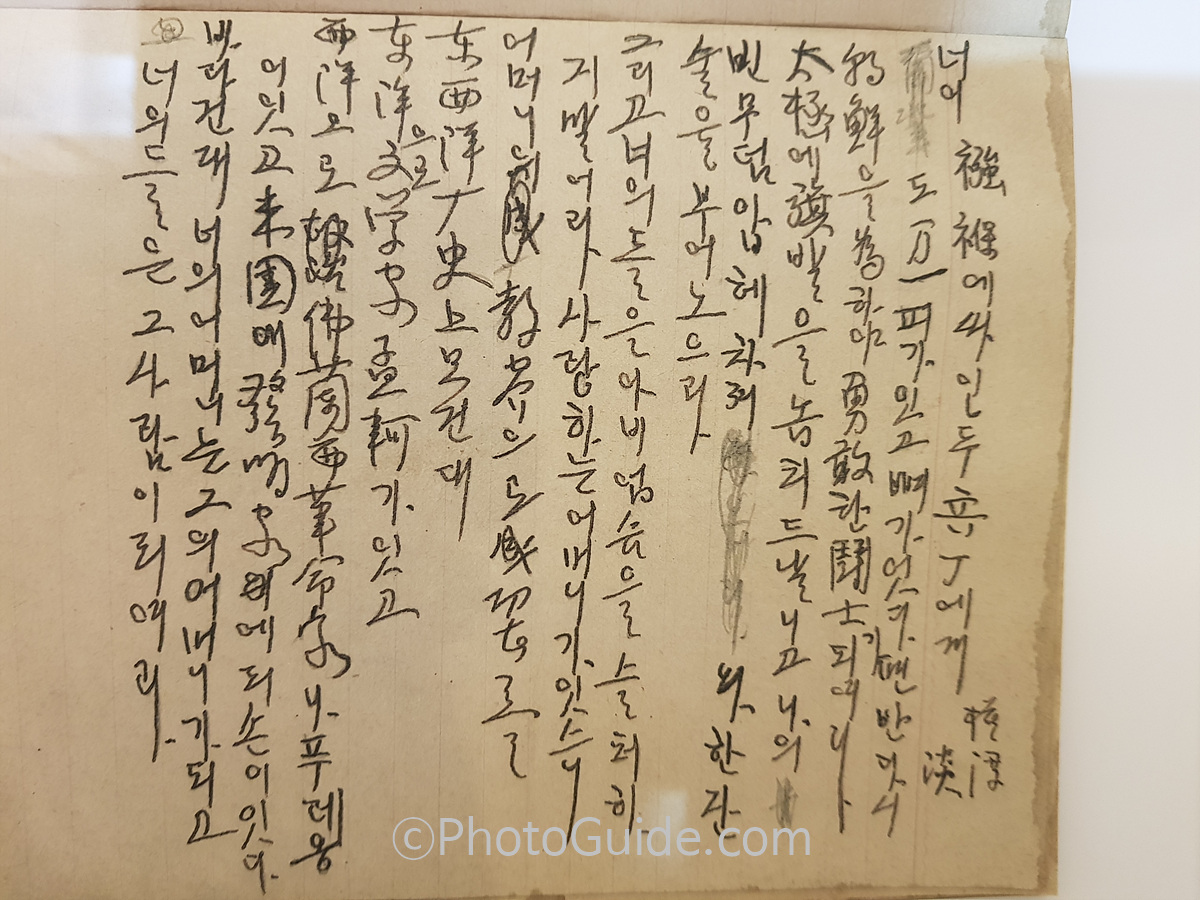 襁褓에싸인두兵丁에게
模淳
淡
너이도万一피가잇고뼈가잇다면반다시
朝鮮을爲하야勇敢한鬪士가되여라
太極에旗발을놉피드날니고나의
빈무덤압헤차저와한잔
술을부어노으라
그리고너의들은아비업슴을슬퍼하
지말어라사랑하는어머니가잇스니
어머니의敎育으로成功者를
东西洋 史上보건대
东洋으로文学家孟軻가잇고
西洋으로佛蘭西革命家나푸레옹
이잇고米国에發明家에듸손이잇다
바라건대너의어머니는그의어머니가되고
너의들은그사람이되여라
©PhotoGuide.com